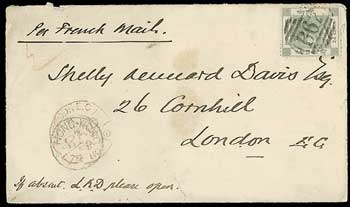 Per French Mail.
B62
Shelly Leonard Davis Esq.
26 Cornhill
London EC
HONG-KONG
If absent L&D please open.